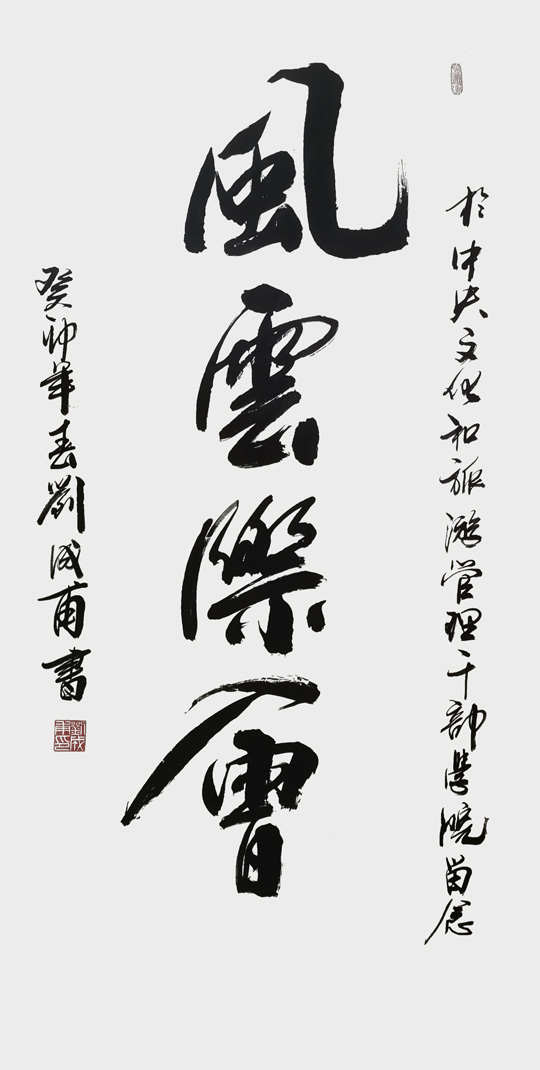 於中央文化和旅游管理干部學院留念
風雲際會
癸卯年春劉成甫書